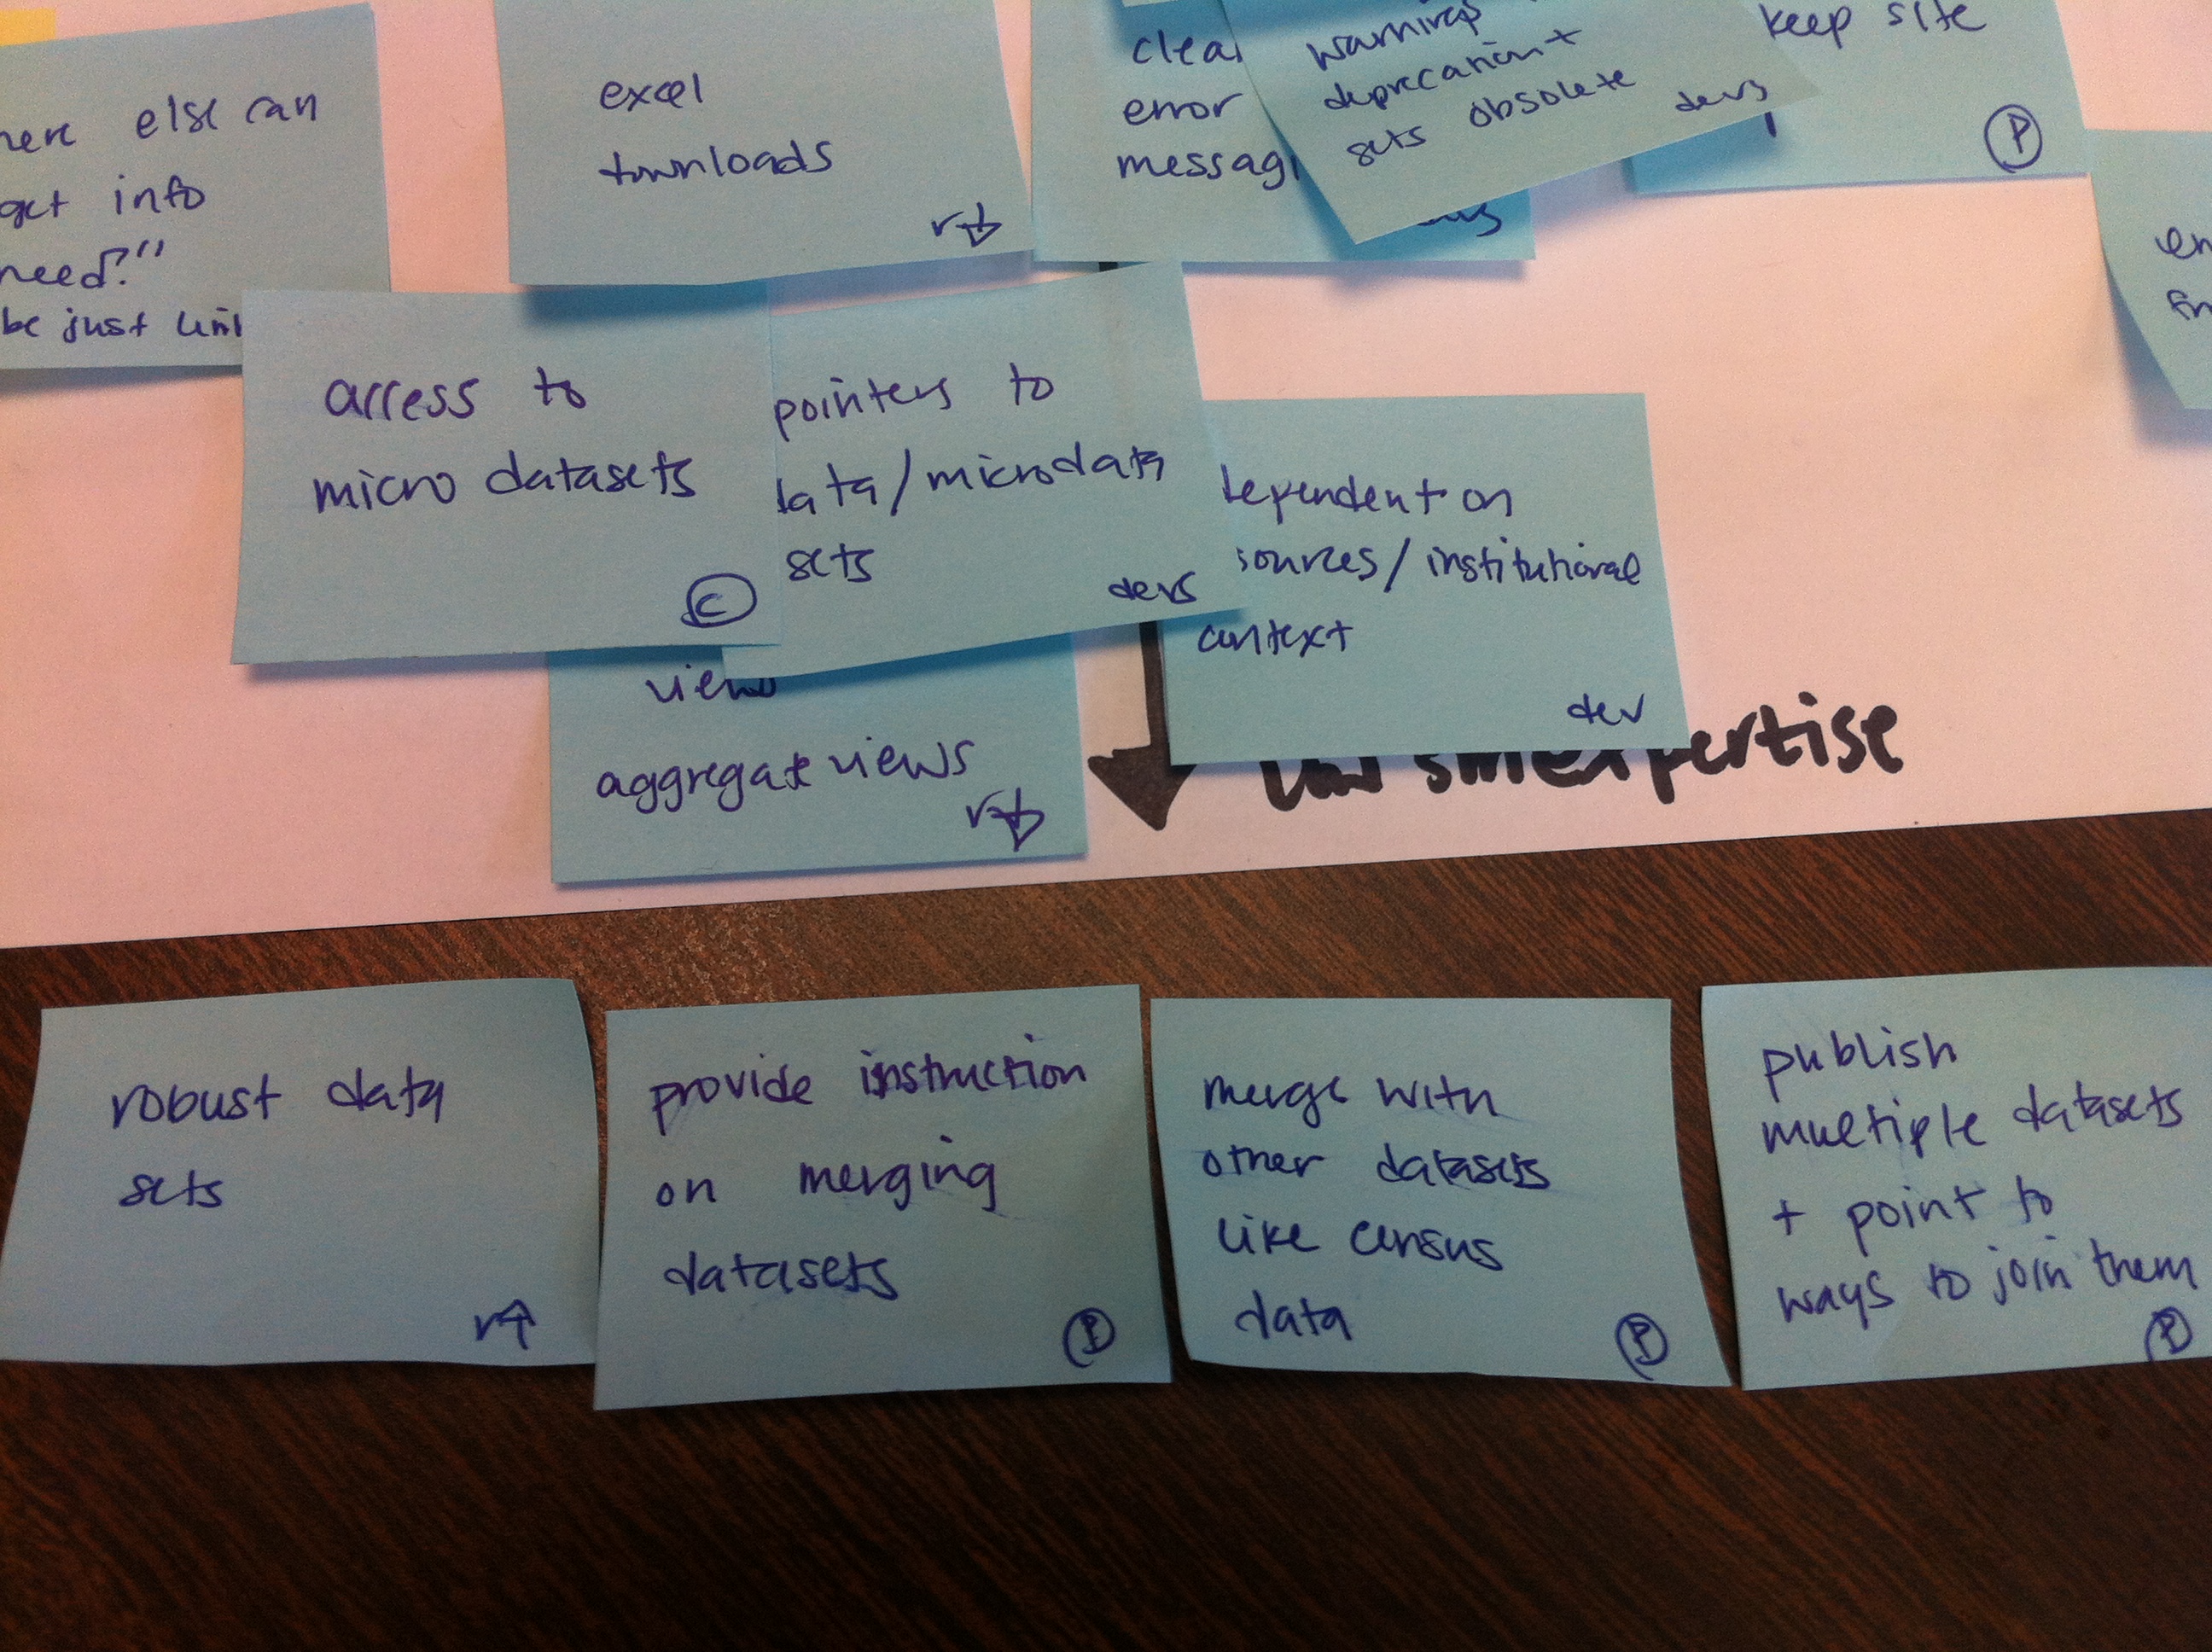 else can
get info
need?"
be just
excel
downloads
r↓
clear
error
warnings
deprecation +
sets obsolete
devs
keep site
P
access to
micro datasets
C
pointers to
data/microdata
sets
devs
dependent on
sources/institutional
context
dev
views
aggregate views
r↓
expertise
robust data
sets
r↑
provide instruction
on merging
datasets
P
merge with
other datasets
like census
data
P
publish
multiple datasets
+ point to
ways to join them
P